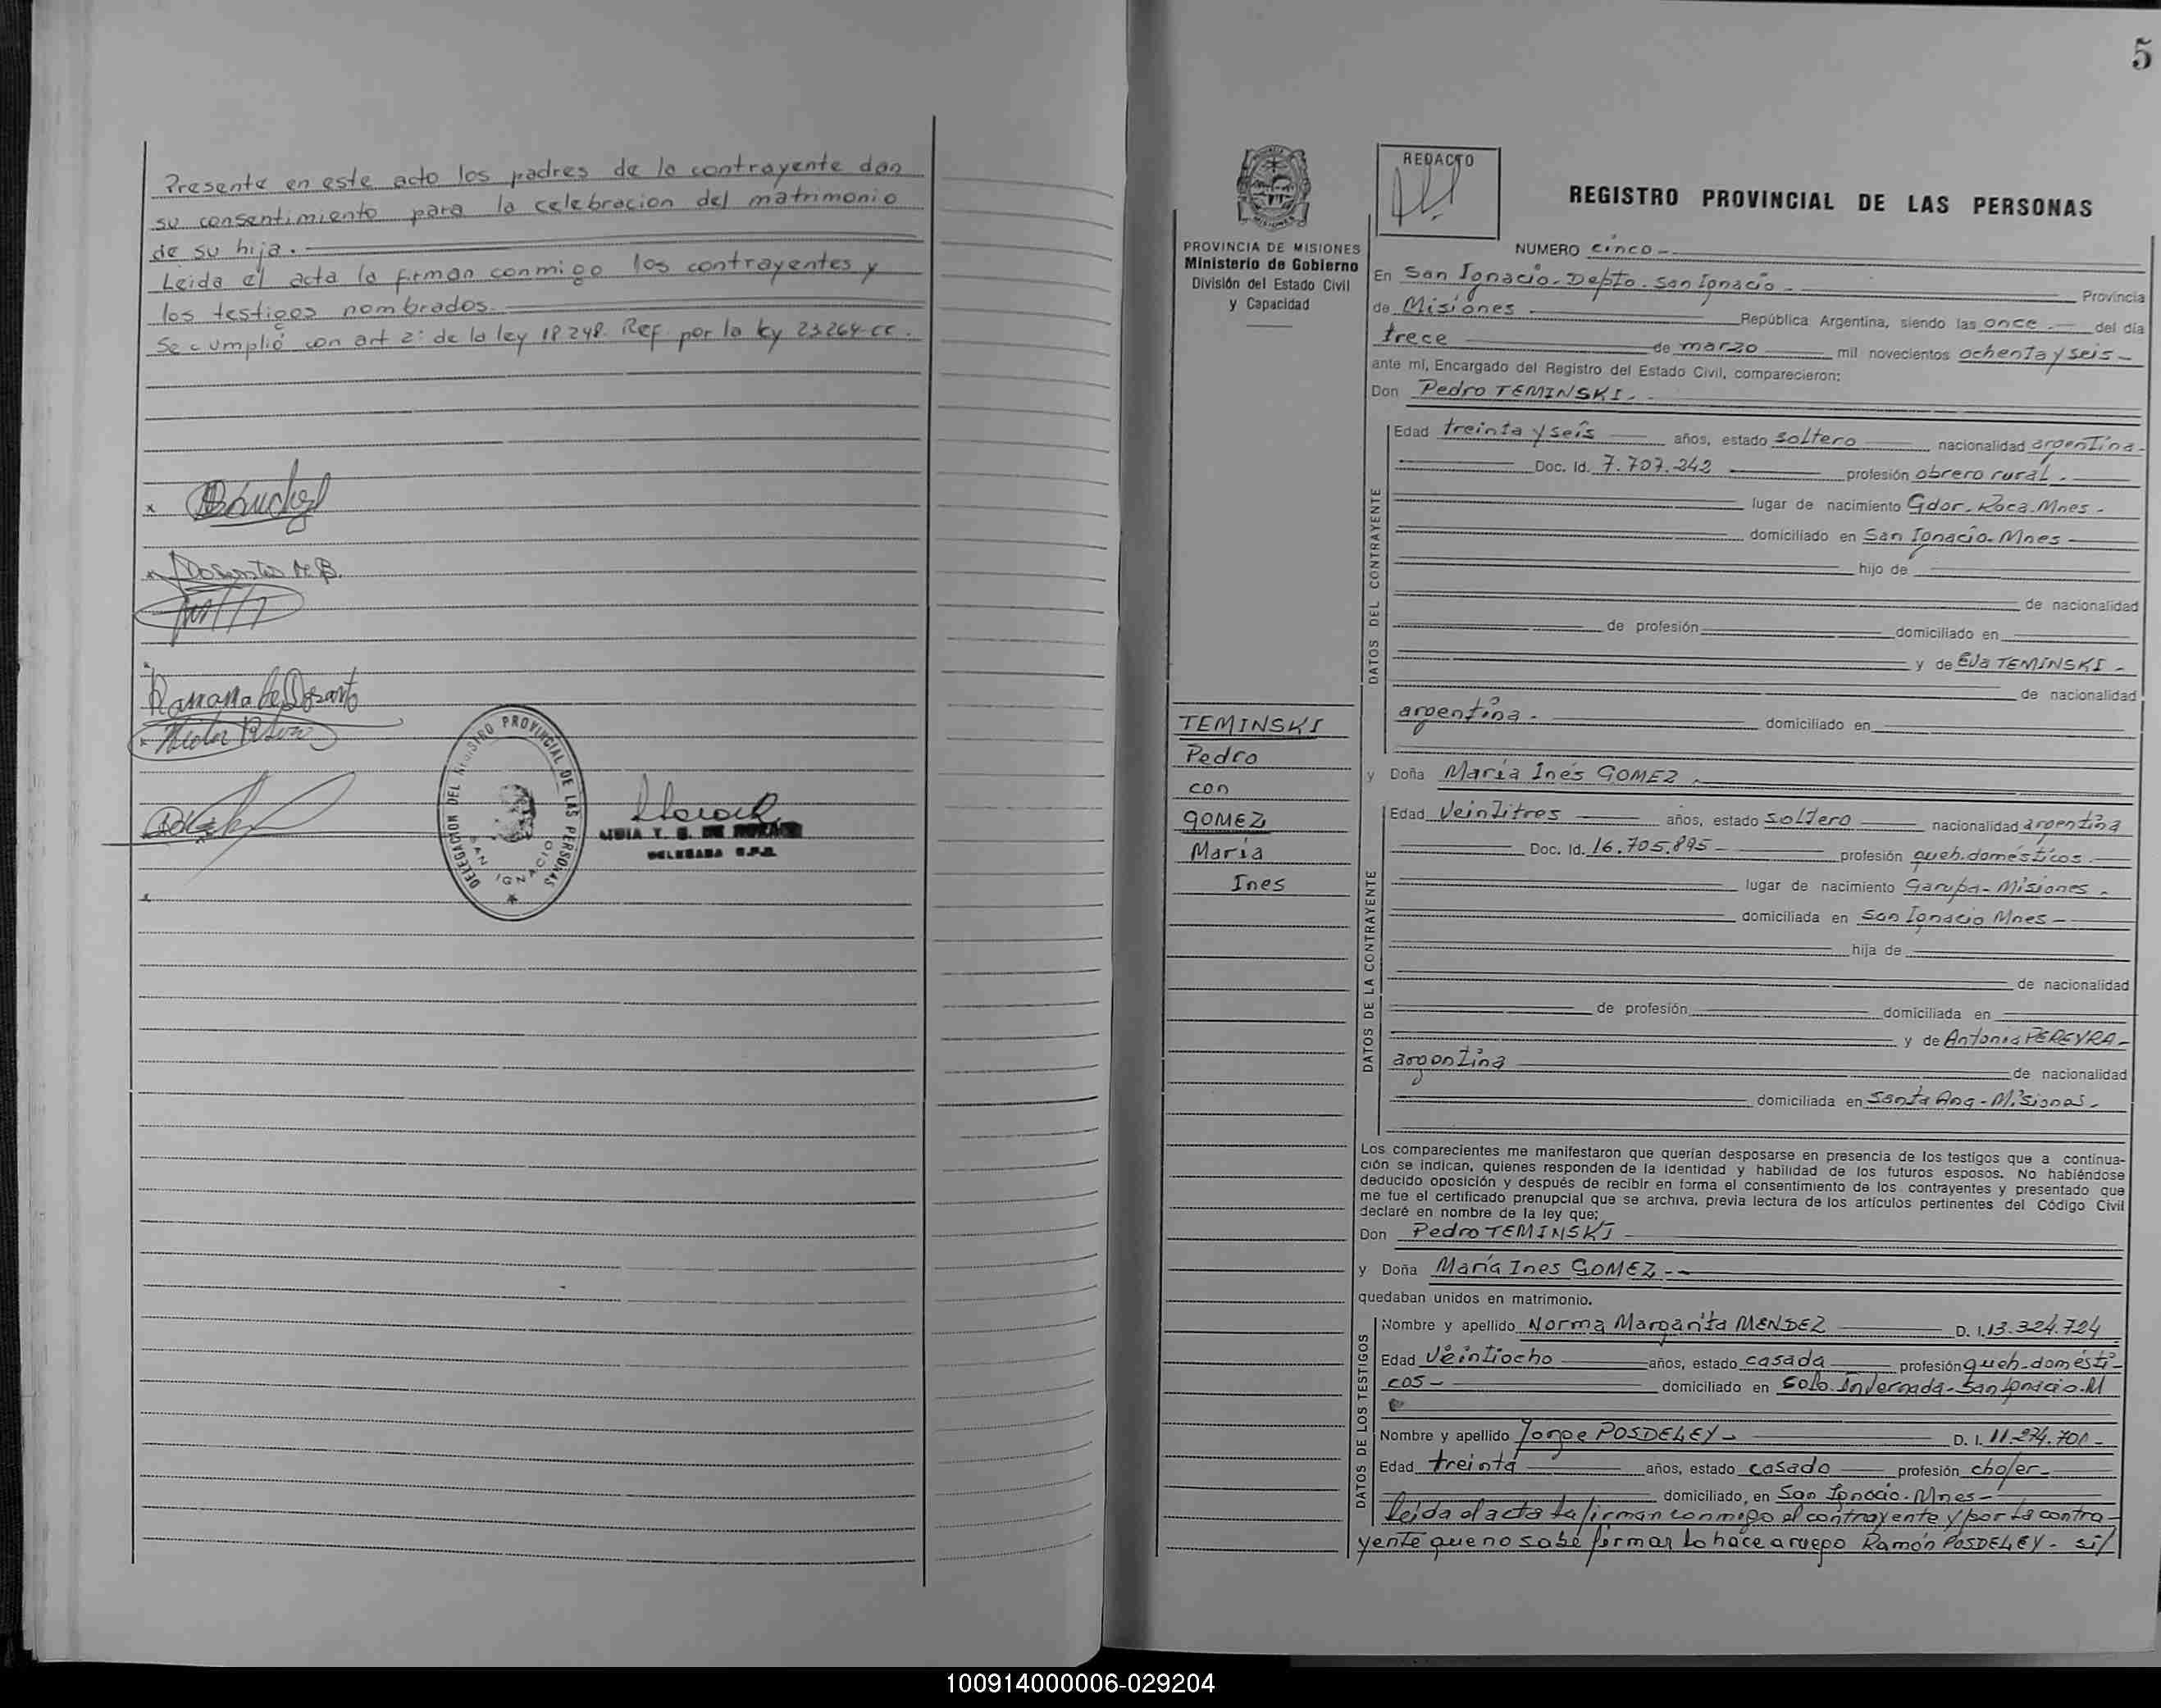 Presente en este acto los padres de la contrayente dan
su consentimiento para la celebracion del matrimonio
de su hija.
Leida el acta la firman conmigo los contrayentes y
los testigos nombrados.
Se cumplió con art 2: de la ley 18248. Ref. por la ley 23264-CC.
x
DELEGACION DEL REGISTRO PROVINCIAL DE LAS PERSONAS
SAN IGNACIO
5
REDACTO
REGISTRO PROVINCIAL DE LAS PERSONAS
PROVINCIA DE MISIONES
Ministerio de Gobierno
División del Estado Civil
y Capacidad
NUMERO cinco -
En San Ignacio. Depto. San Ignacio - Provincia
de Misiones República Argentina, siendo las once del día
trece de marzo mil novecientos ochenta y seis -
ante mí, Encargado del Registro del Estado Civil, comparecieron:
Don Pedro TEMINSKI.
DATOS DEL CONTRAYENTE
Edad treinta y seis años, estado soltero nacionalidad argentina-
Doc. Id. 7.707.242 profesión obrero rural.
lugar de nacimiento Gdor. Roca. Mnes -
domiciliado en San Ignacio. Mnes
hijo de
de nacionalidad
de profesión domiciliado en
y de Eva TEMINSKI -
de nacionalidad
argentina. domiciliado en
TEMINSKI
Pedro
con
GOMEZ
María
Ines
y Doña María Inés GOMEZ.
DATOS DE LA CONTRAYENTE
Edad Veintitres años, estado soltero nacionalidad argentina
Doc. Id. 16.705.895 - profesión queh. domésticos.
lugar de nacimiento Garupa - Misiones -
domiciliada en San Ignacio Mnes -
hija de
de nacionalidad
de profesión domiciliada en
y de Antonia PEREYRA -
argentina de nacionalidad
domiciliada en Santa Ana - Misiones.
Los comparecientes me manifestaron que querían desposarse en presencia de los testigos que a continua-
ción se indican, quienes responden de la identidad y habilidad de los futuros esposos. No habiéndose
deducido oposición y después de recibir en forma el consentimiento de los contrayentes y presentado que
me fue el certificado prenupcial que se archiva, previa lectura de los artículos pertinentes del Código Civil
declaré en nombre de la ley que;
Don Pedro TEMINSKI
y Doña María Ines GOMEZ - -
quedaban unidos en matrimonio.
DATOS DE LOS TESTIGOS
Nombre y apellido Norma Margarita MENDEZ D. I. 13.324.724
Edad Veintiocho años, estado casada profesión queh. domésti-
cos - domiciliado en San Ignacio. M
Nombre y apellido Jorge POSDELEY - D. I. 11.274.701 -
Edad treinta años, estado casado profesión chofer -
domiciliado, en San Ignacio. Mnes -
Leida el acta la firman conmigo el contrayente y por la contra-
yente que no sabe firmar lo hace a ruego Ramón POSDELEY -
100914000006-029204